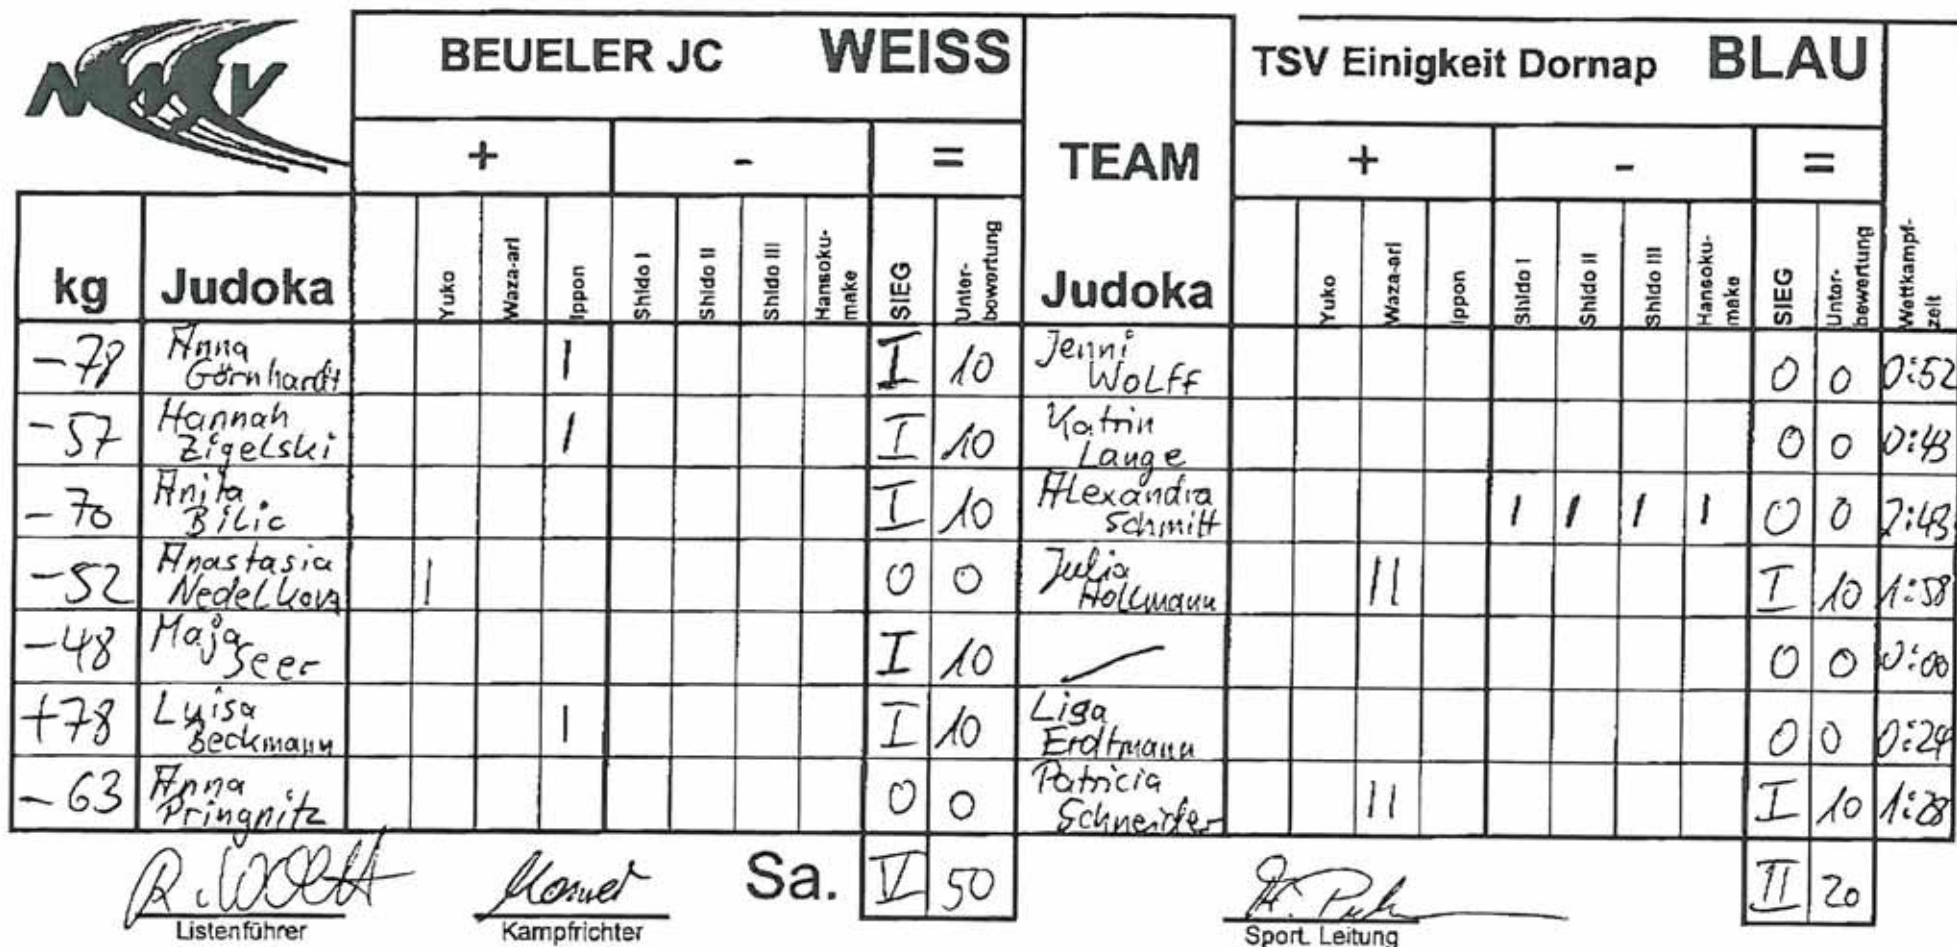 NWJV
BEUELER JC WEISS
TSV Einigkeit Dornap BLAU
+ - = TEAM + - =
kg Judoka Yuko Waza-ari Ippon Shido I Shido II Shido III Hansoku-make SIEG Unter-bewertung Judoka Yuko Waza-ari Ippon Shido I Shido II Shido III Hansoku-make SIEG Unter-bewertung Wettkampf-zeit
-78 Anna Görnhardt I I 10 Jenni Wolff 0 0 0:52
-57 Hannah Zigelski I I 10 Katrin Lange 0 0 0:43
-70 Anita Bilic I 10 Alexandra Schmitt I I I I 0 0 2:43
-52 Anastasia Nedelkova I 0 0 Julia Hollmann II I 10 1:58
-48 Maja Seer I 10 0 0 0:00
+78 Luisa Beckmann I I 10 Liga Erdtmann 0 0 0:24
-63 Anna Pringnitz 0 0 Patricia Schneider II I 10 1:28
Sa. V 50 II 20
R. Wolff
Listenführer
Kampfrichter
Sport. Leitung